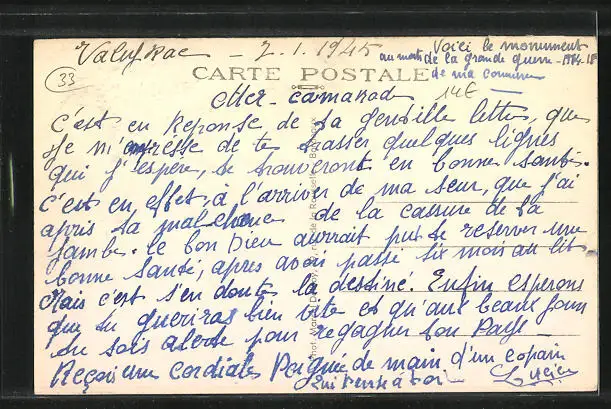 Valeyrac - 2.1.1945
Voici le monument
au morts de la grande guerre - 1914-18
de ma commune
33
CARTE POSTALE
14€
Cher camarade
C'est en Reponse de ta gentille lettre, que
je m'empresse de te tracer quelques lignes
qui j'espère, te trouveront en bonne santé.
C'est en effet, à l'arriver de ma seur, que j'ai
apris ta malchance de la cassure de ta
jambe. le bon Dieu aurrait put te reserver une
bonne santé, apres avoir passé six mois au lit
Mais c'est s'en doute la dessiné. Enfin esperons
que tu gueriras bien vite et qu'aux beaux jours
tu sois alerte pour regagner ton Pays
Reçois une cordiale Poignée de main d'un copain
qui pense à toi
Lucien